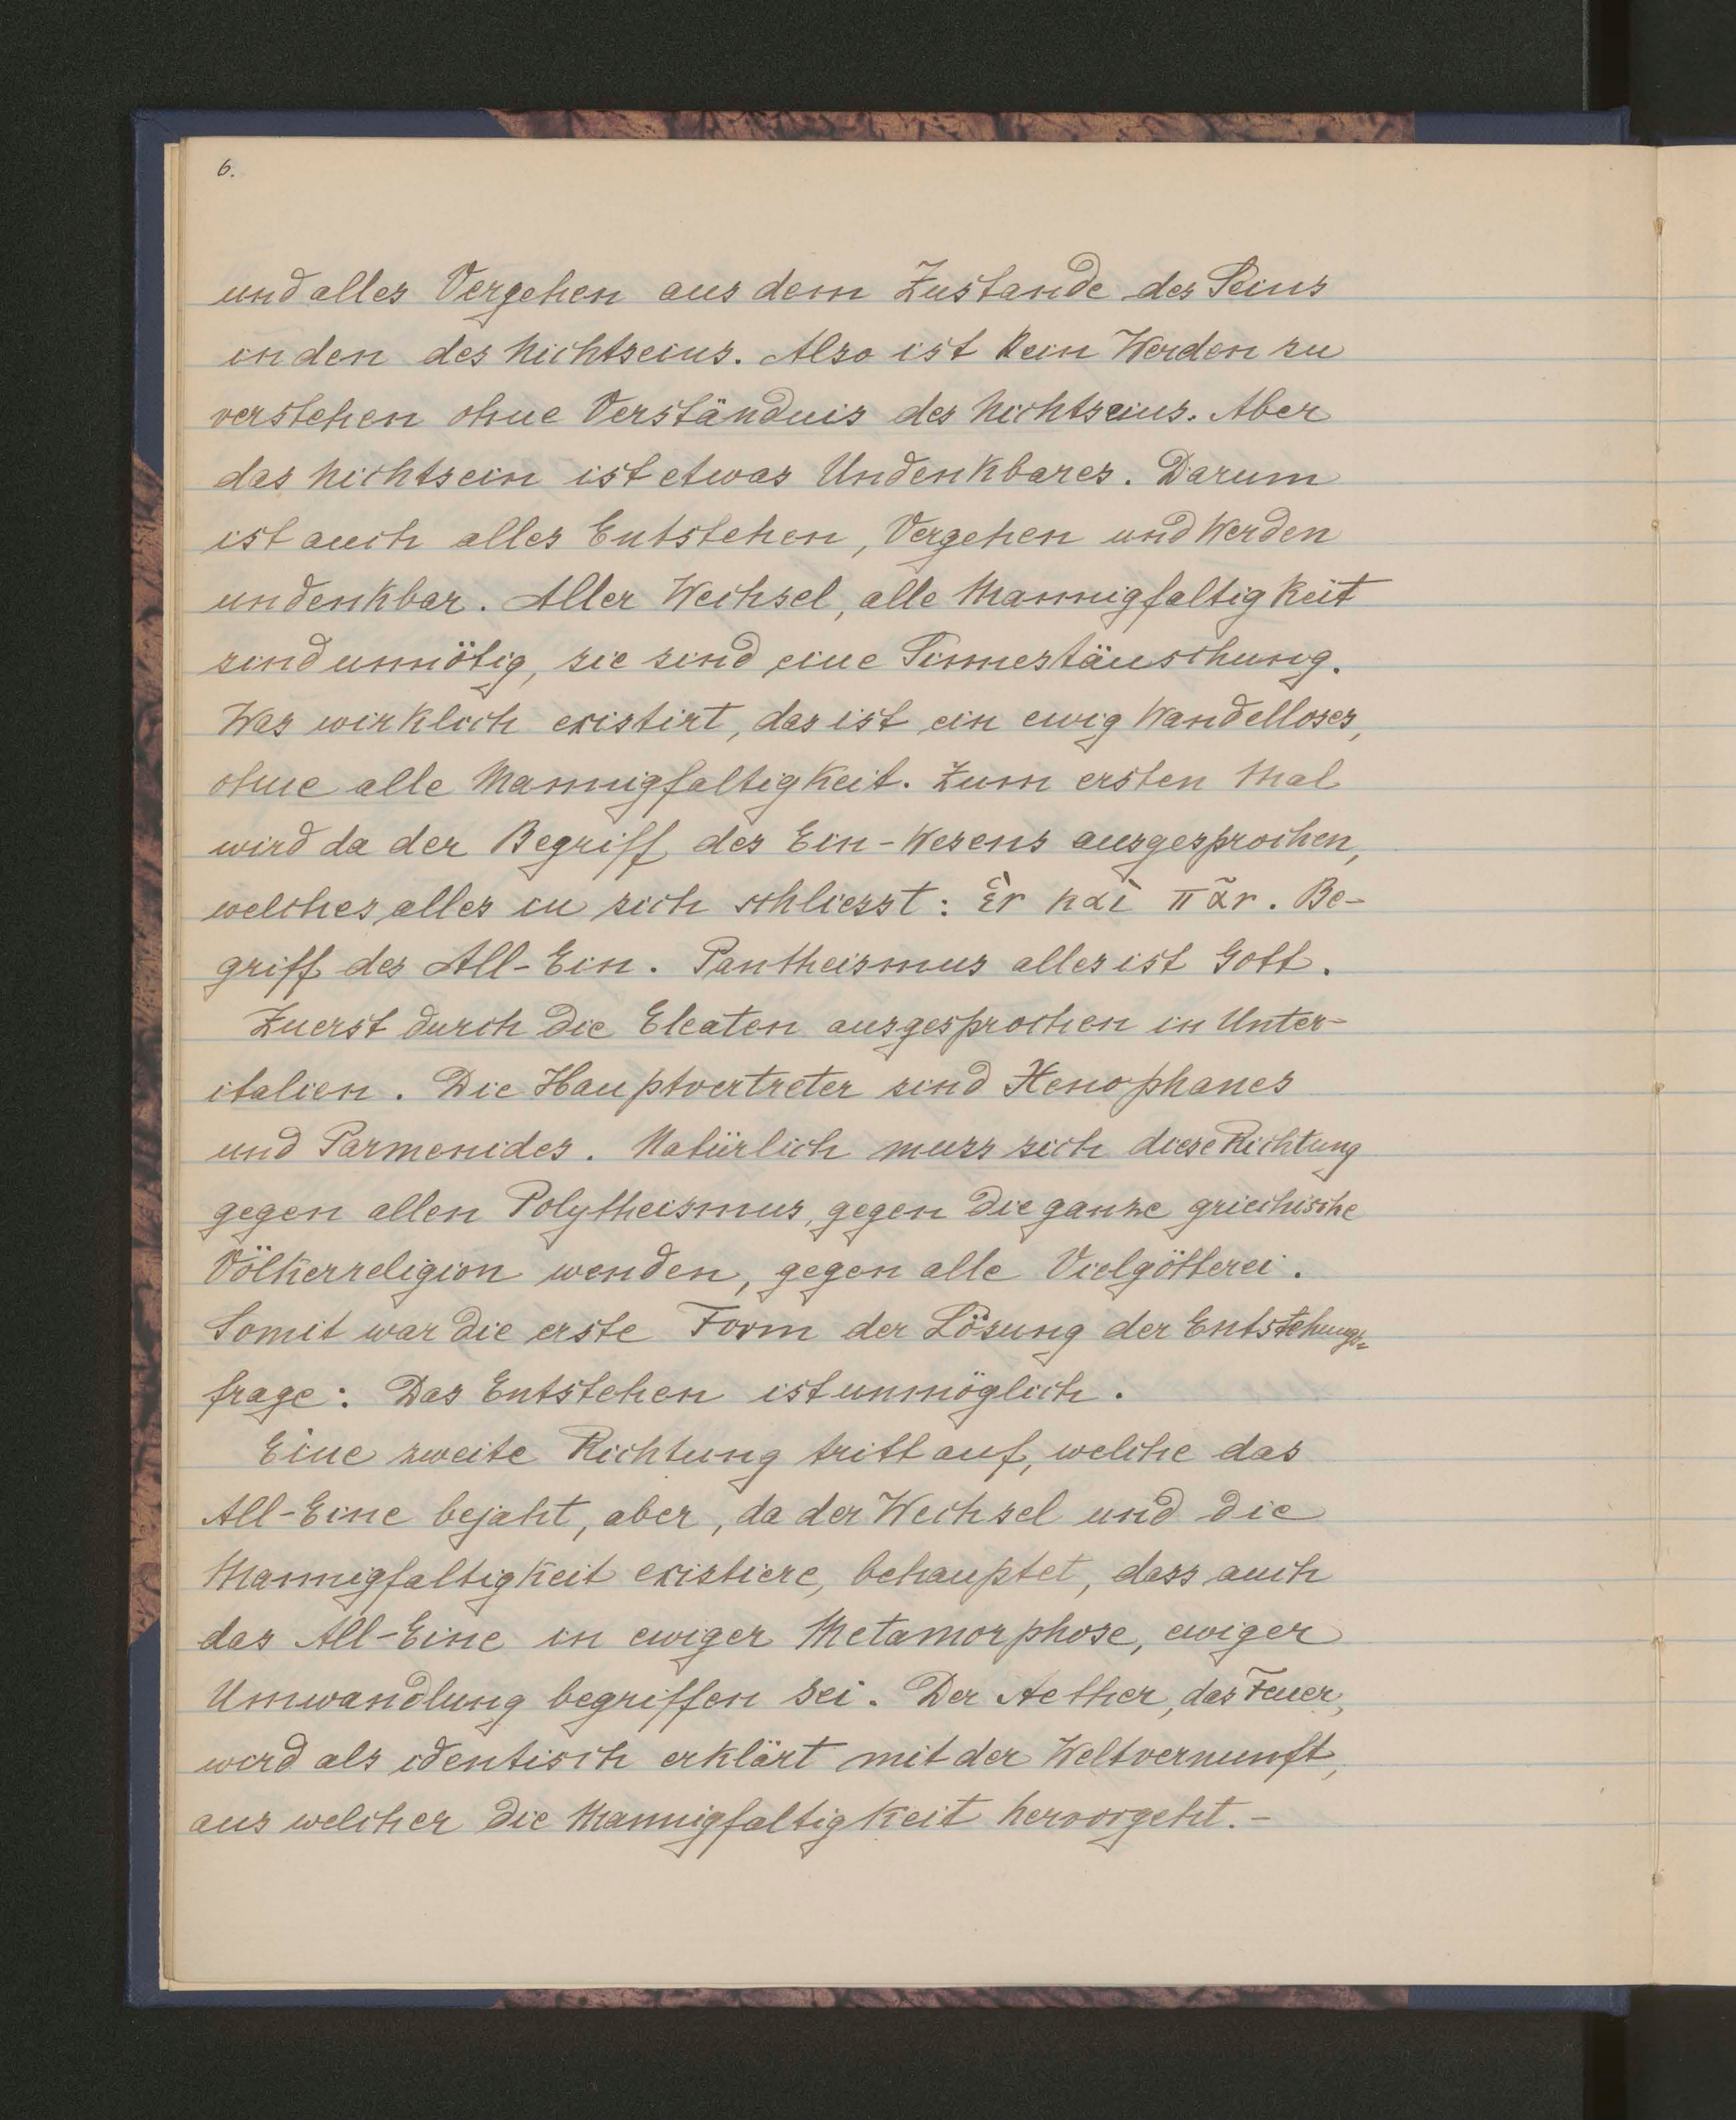 6.
und alles Vergehen aus dem Zustande des Seins
in den des Nichtseins. Also ist kein Werden zu
verstehen ohne Verständnis des Nichtseins. Aber
das Nichtsein ist etwas Undenkbares. Darum
ist auch alles Entstehen, Vergehen und Werden
undenkbar. Aller Wechsel, alle Mannigfaltigkeit
sind unnötig, sie sind eine Sinnestäuschung.
Was wirklich existirt, das ist ein ewig Wandelloses,
ohne alle Mannigfaltigkeit. Zum ersten Mal
wird da der Begriff des Ein-Wesens ausgesprochen,
welches alles in sich schliesst: ἓν καὶ πᾶν. Be-
griff des All-Ein. Pantheismus alles ist Gott.
Zuerst durch die Eleaten ausgesprochen in Unter-
italien. Die Hauptvertreter sind Xenophanes
und Parmenides. Natürlich muss sich diese Richtung
gegen allen Polytheismus, gegen die ganze griechische
Völkerreligion wenden, gegen alle Vielgötterei.
Somit war die erste Form der Lösung der Entstehungs-
frage: Das Entstehen ist unmöglich.
Eine zweite Richtung tritt auf, welche das
All-Eine bejaht, aber, da der Wechsel und die
Mannigfaltigkeit existiere, behauptet, dass auch
das All-Eine in ewiger Metamorphose, ewiger
Umwandlung begriffen sei. Der Aether, das Feuer,
wird als identisch erklärt mit der Weltvernunft,
aus welcher die Mannigfaltigkeit hervorgeht.-